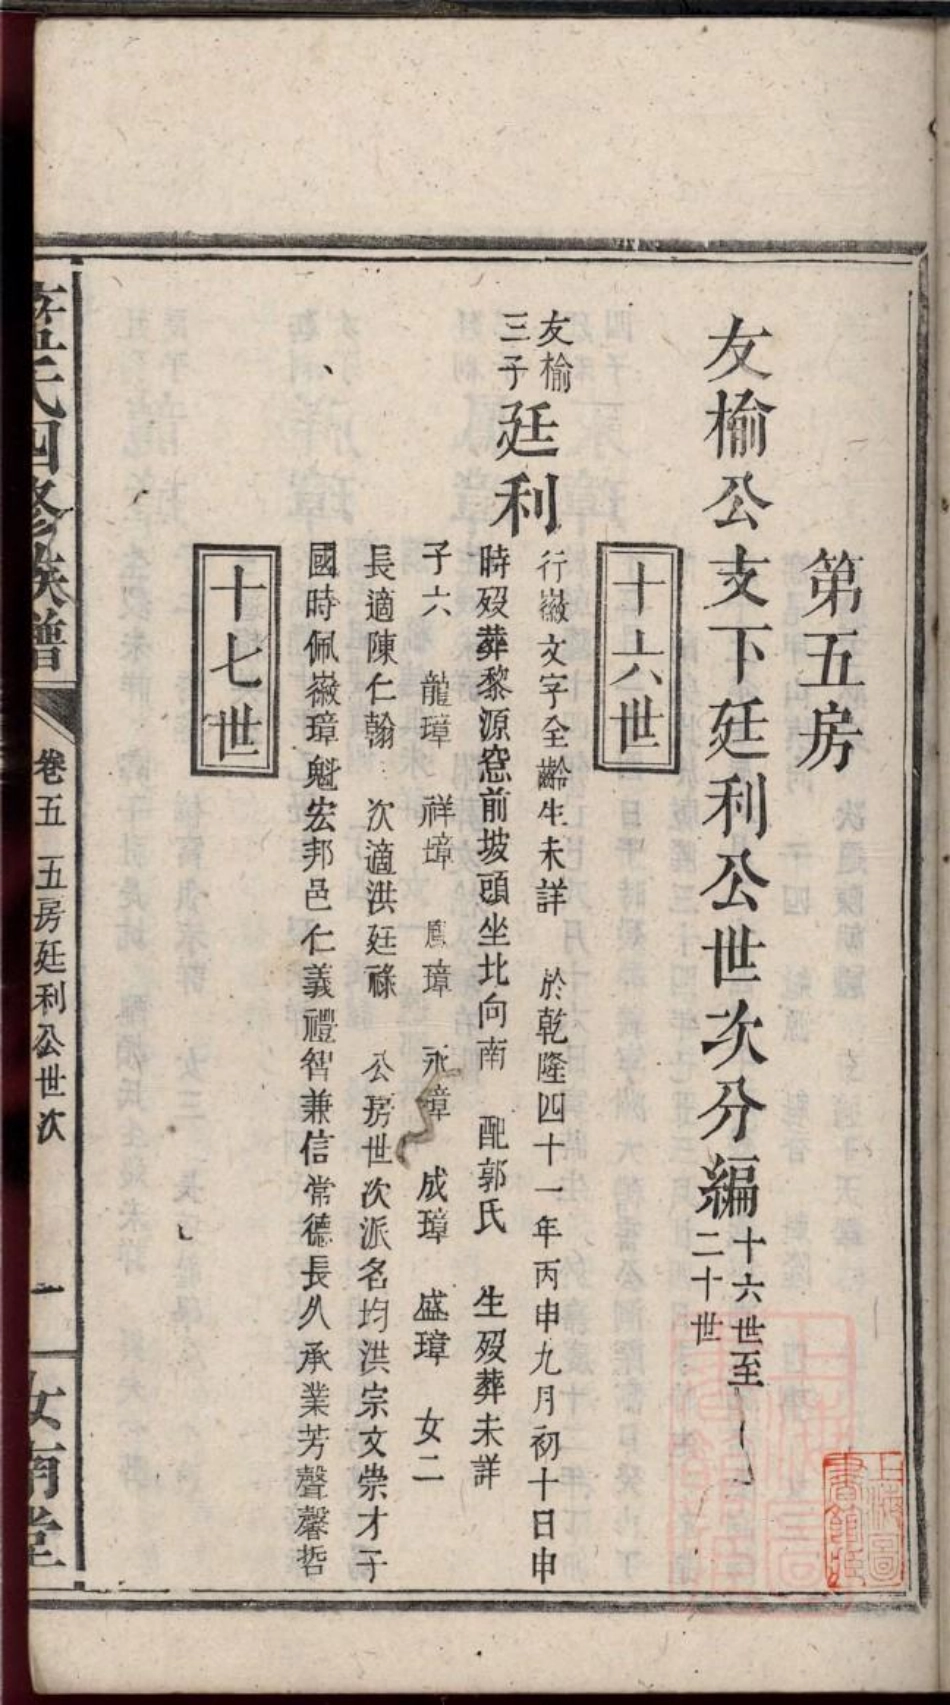 第五房
友榆公支下廷利公世次分編十六世至
二十世
十六世
友榆
三子
廷利
行徽文字全齡生未詳 於乾隆四十一年丙申九月初十日申
時歿葬黎源窓前坡頭坐北向南 配郭氏 生歿葬未詳
子六 龍璋 祥璋 鳳璋 永璋 成璋 盛璋 女二
長適陳仁翰 次適洪廷祿 公房世次派名均洪宗文崇才子
國時佩徽璋魁宏邦邑仁義禮智兼信常德長久承業芳聲馨哲
十七世
氏四修族譜
卷五 五房廷利公世次
一
汝南堂
上海圖
書館藏